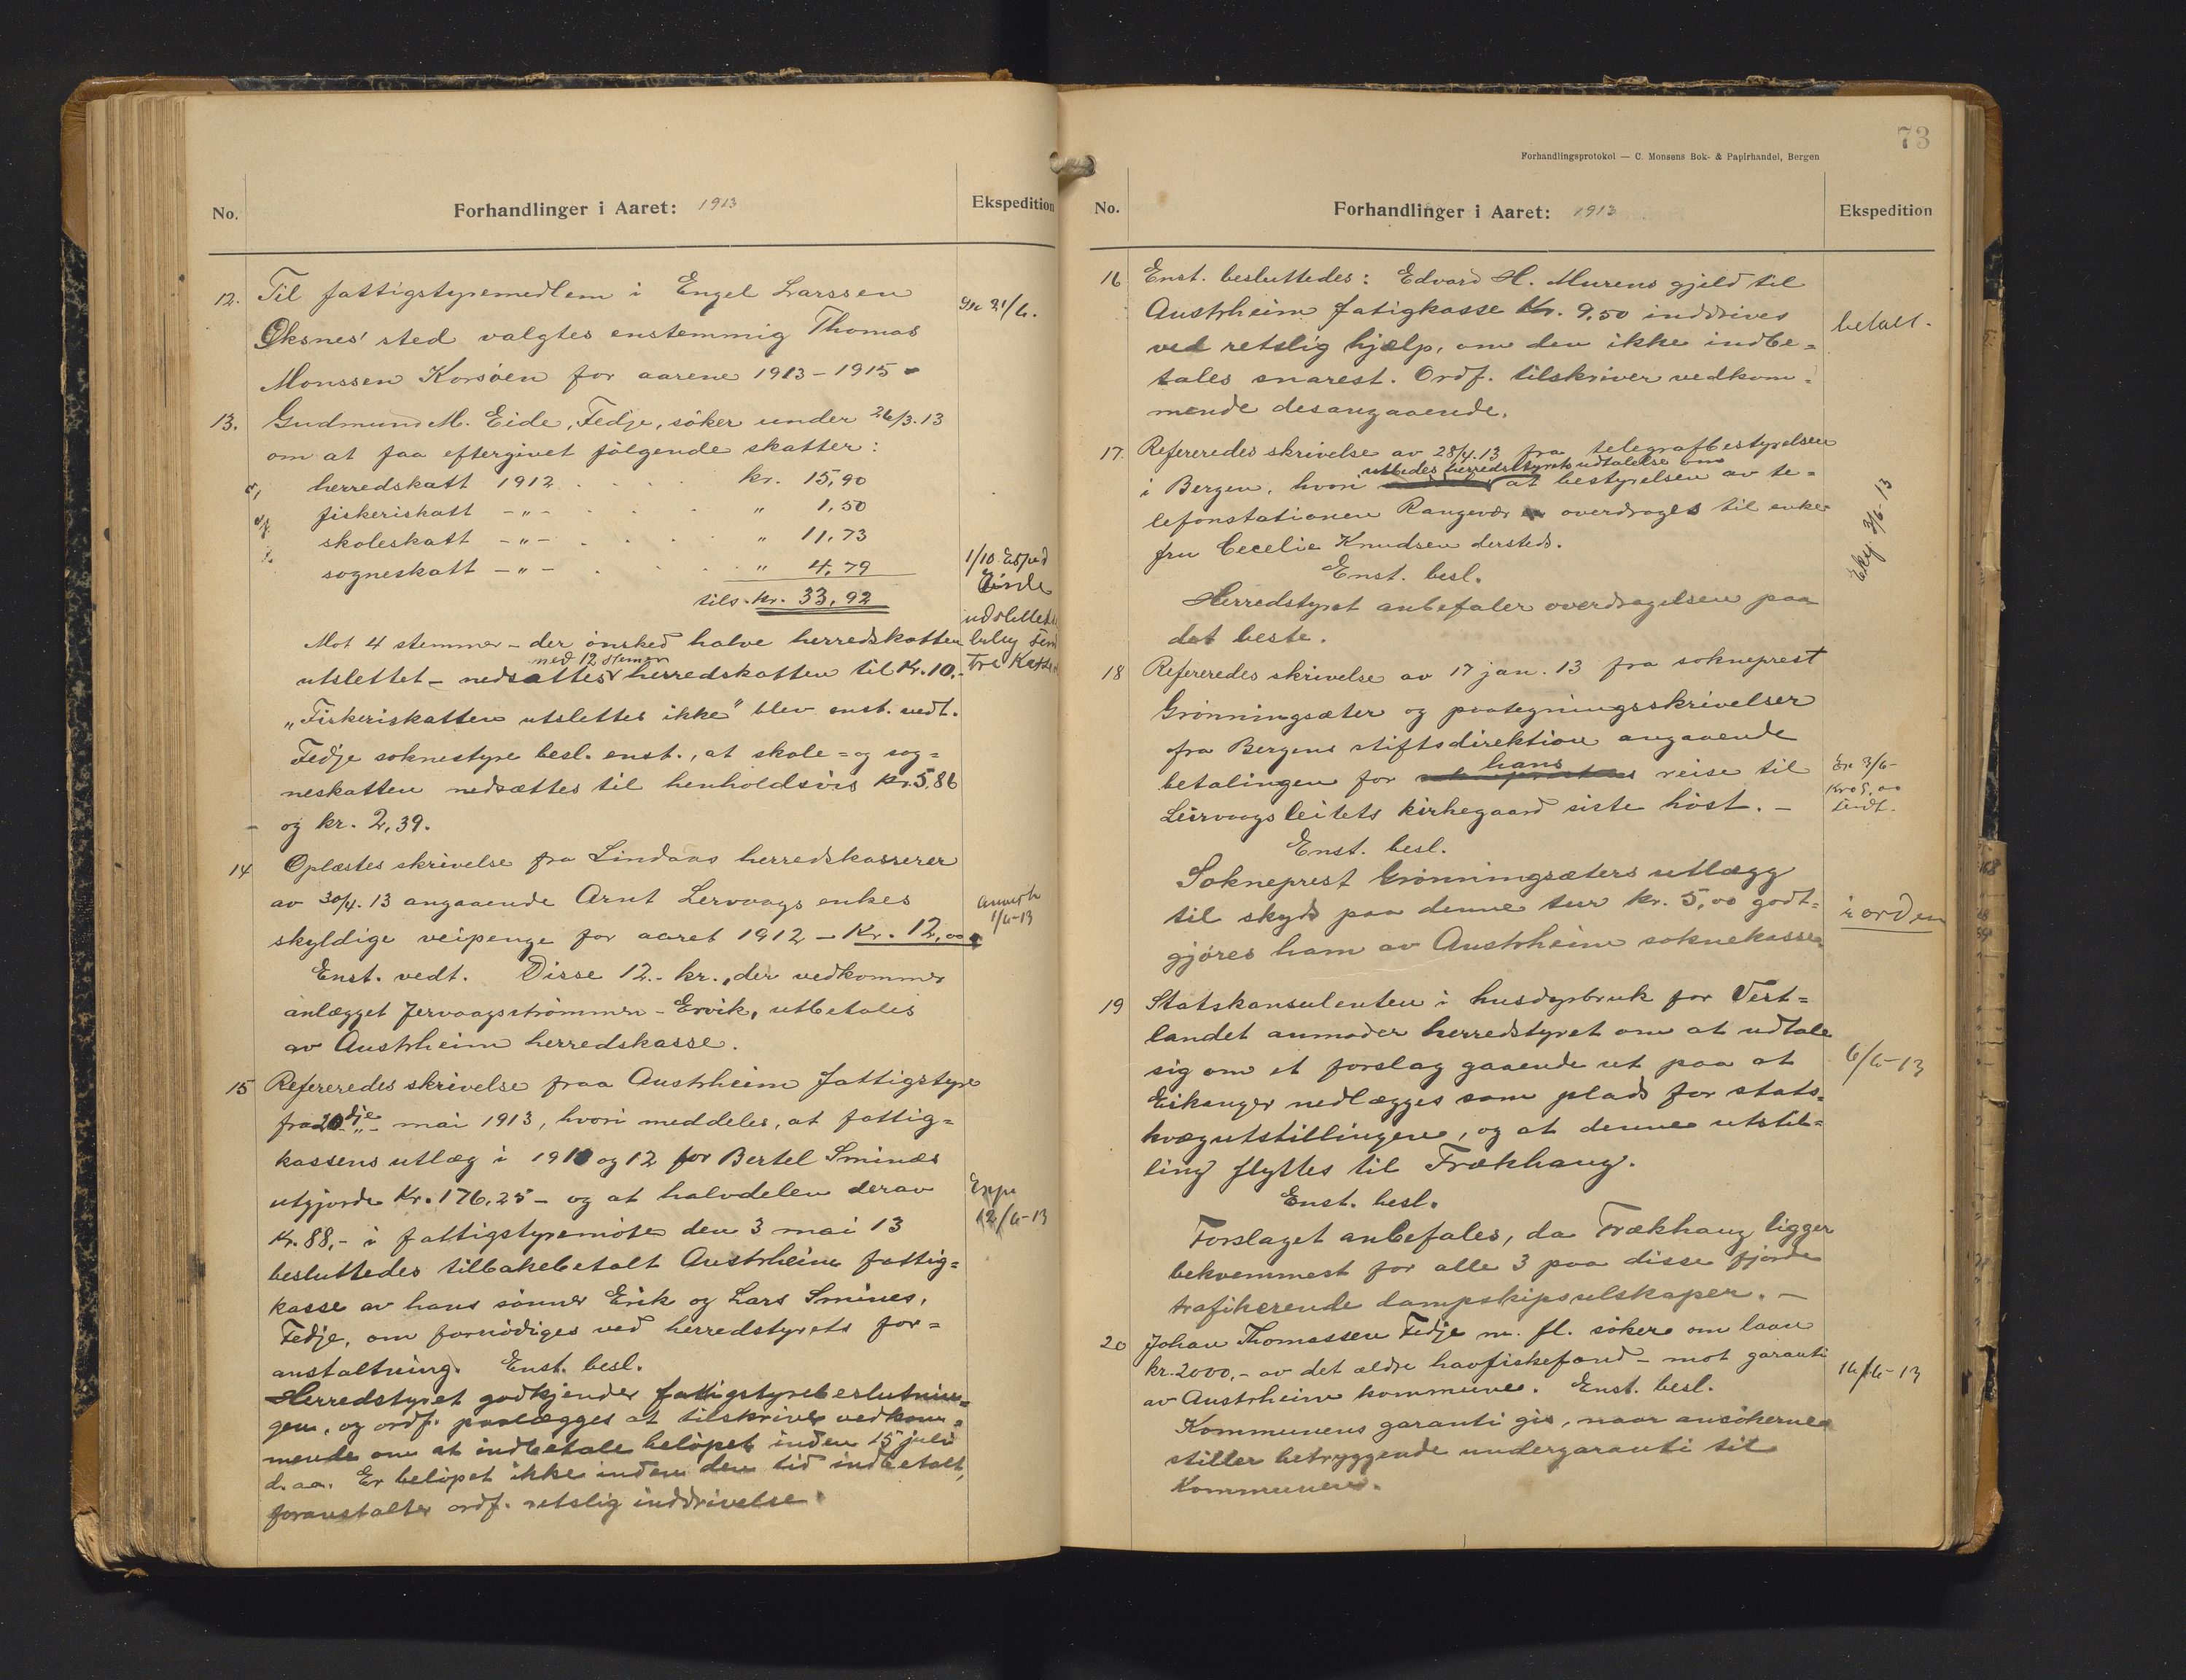 No.
Forhandlinger i Aaret: 1913
Ekspedition
12. Til fattigstyremedlem i Engel Larssen
Øksnes' sted valgtes enstemmig Thomas
Monssen Korsöen for aarene 1913-1915
13. Gudmund M. Eide, Fedje, söker under 26/3.13
om at faa eftergivet fölgende skatter:
herredskatt 1912 . . . . kr. 15,90
fiskeriskatt -"- . . . " 1,50
skoleskatt -"- . . . " 11,73
sogneskatt -"- . . . " 4,79
tils. kr. 33,92
1/10 Esped
Mot 4 stemmer - der önsked halve herredskatten
utslettet - nedsattes med 12 stemer herredskatten til Kr. 10.-
"Fiskeriskatten utslettes ikke" blev enst. vedt.
Fedje soknestyre besl. enst., at skole- og sog=
neskatten nedsættes til henholdsvis Kr. 5,86
og kr. 2,39.
14 Oplæstes skrivelse fra Lindaas herredskasserer
av 30/4.13 angaaende Arnt Lervaags enkes
skyldige veipenge for aaret 1912 - Kr. 12,00
1/6-13
Enst. vedt. Disse 12.- kr., der vedkommer
anlægget Jervaagsströmmen - Ervik, utbetales
av Austrheim herredskasse.
15 Refereredes skrivelse fraa Austrheim fattigstyre
fra 20dje mai 1913, hvori meddeles, at fattig=
kassens utlæg i 1910 og 12 for Bertel Sminæs
utgjorde Kr. 176,25 - og at halvdelen derav
Kr. 88,- i fattigstyremöte den 3 mai 13
12/6-13
besluttedes tilbakebetalt Austrheim fattig=
kasse av hans sönner Erik og Lars Smines,
Fedje, om fornödiges ved herredstyrets for=
anstaltning. Enst. besl.
Herredstyret godkjender fattigstyrebeslutnin=
gen, og ordf. paalægges at tilskrive vedkom=
mende om at indbetale belöpet inden 15 juli
d. aa. Er belöpet ikke inden den tid indbetalt,
foranstalter ordf. retslig inddrivelse.
73
Forhandlingsprotokol — C. Monsens Bok- & Papirhandel, Bergen
No.
Forhandlinger i Aaret: 1913
Ekspedition
16 Enst. besluttedes: Edvard H. Murens gjeld til
Austrheim fatigkasse Kr. 9,50 inddrives
betalt.
ved retslig hjælp, om den ikke indbe=
tales snarest. Ordf. tilskriver vedkom=
mende desangaaende.
17. Refereredes skrivelse av 28/4.13 fra telegrafbestyrelsen
i Bergen, hvori utbedes herredstyrets udtalelse om at bestyrelsen av te=
lefonstationen Rangevær overdrages til enke=
fru Cecelie Knudsen dersteds.
Enst. besl.
Herredstyret anbefaler overdragelsen paa
det beste.
18 Refereredes skrivelse av 17 jan. 13 fra sokneprest
Grönningsæter og paategningsskrivelser
fra Bergens stiftsdirektion angaaende
betalingen for hans reise til
Leirvaagsleitets kirkegaard siste höst. -
Enst. besl.
Sokneprest Grönningsæters utlægg
til skyds paa denne tur kr. 5,00 godt=
i orden
gjöres ham av Austrheim soknekasse.
19 Statskonsulenten i husdyrbruk for Vest=
landet anmoder herredstyret om at udtale
sig om et forslag gaaende ut paa at
6/6-13
Eikanger nedlægges som plads for stats=
kvægutstillingene, og at denne utstil=
ling flyttes til Frækhaug.
Enst. besl.
Forslaget anbefales, da Frækhaug ligger
bekvemmest for alle 3 paa disse fjorde
trafikerende dampskipsselskaper. -
20 Johan Thomassen Fedje m. fl. söker om laan
kr. 2000,- av det ældre havfiskefond - mot garanti
16/6-13
av Austrheim kommune. Enst. besl.
Kommunens garanti gis, naar ansökerne
stiller betryggende undergaranti til
Kommunen.